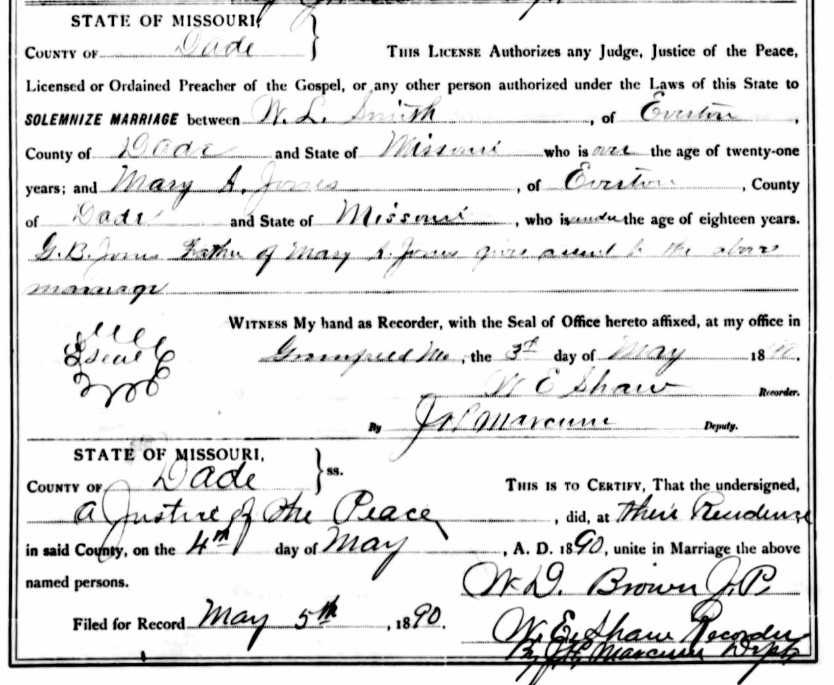 STATE OF MISSOURI,
COUNTY OF Dade } THIS LICENSE Authorizes any Judge, Justice of the Peace,
Licensed or Ordained Preacher of the Gospel, or any other person authorized under the Laws of this State to
SOLEMNIZE MARRIAGE between W. L. Smith, of Everton,
County of Dade and State of Missouri who is over the age of twenty-one
years; and Mary A. Jones, of Everton, County
of Dade and State of Missouri, who is under the age of eighteen years.
G. B. Jones Father of Mary A. Jones gives assent to the above
marriage
WITNESS My hand as Recorder, with the Seal of Office hereto affixed, at my office in
Seal Greenfield Mo, the 3rd day of May 1890.
W E Shaw Recorder.
By Marcum Deputy.
STATE OF MISSOURI,
COUNTY OF Dade } ss. THIS IS TO CERTIFY, That the undersigned,
a Justice of the Peace, did, at their Residence
in said County, on the 4th day of May, A. D. 1890, unite in Marriage the above
named persons. W. D. Brown J.P.
Filed for Record May 5th, 1890.
W. E. Shaw Recorder
By Marcum Dept